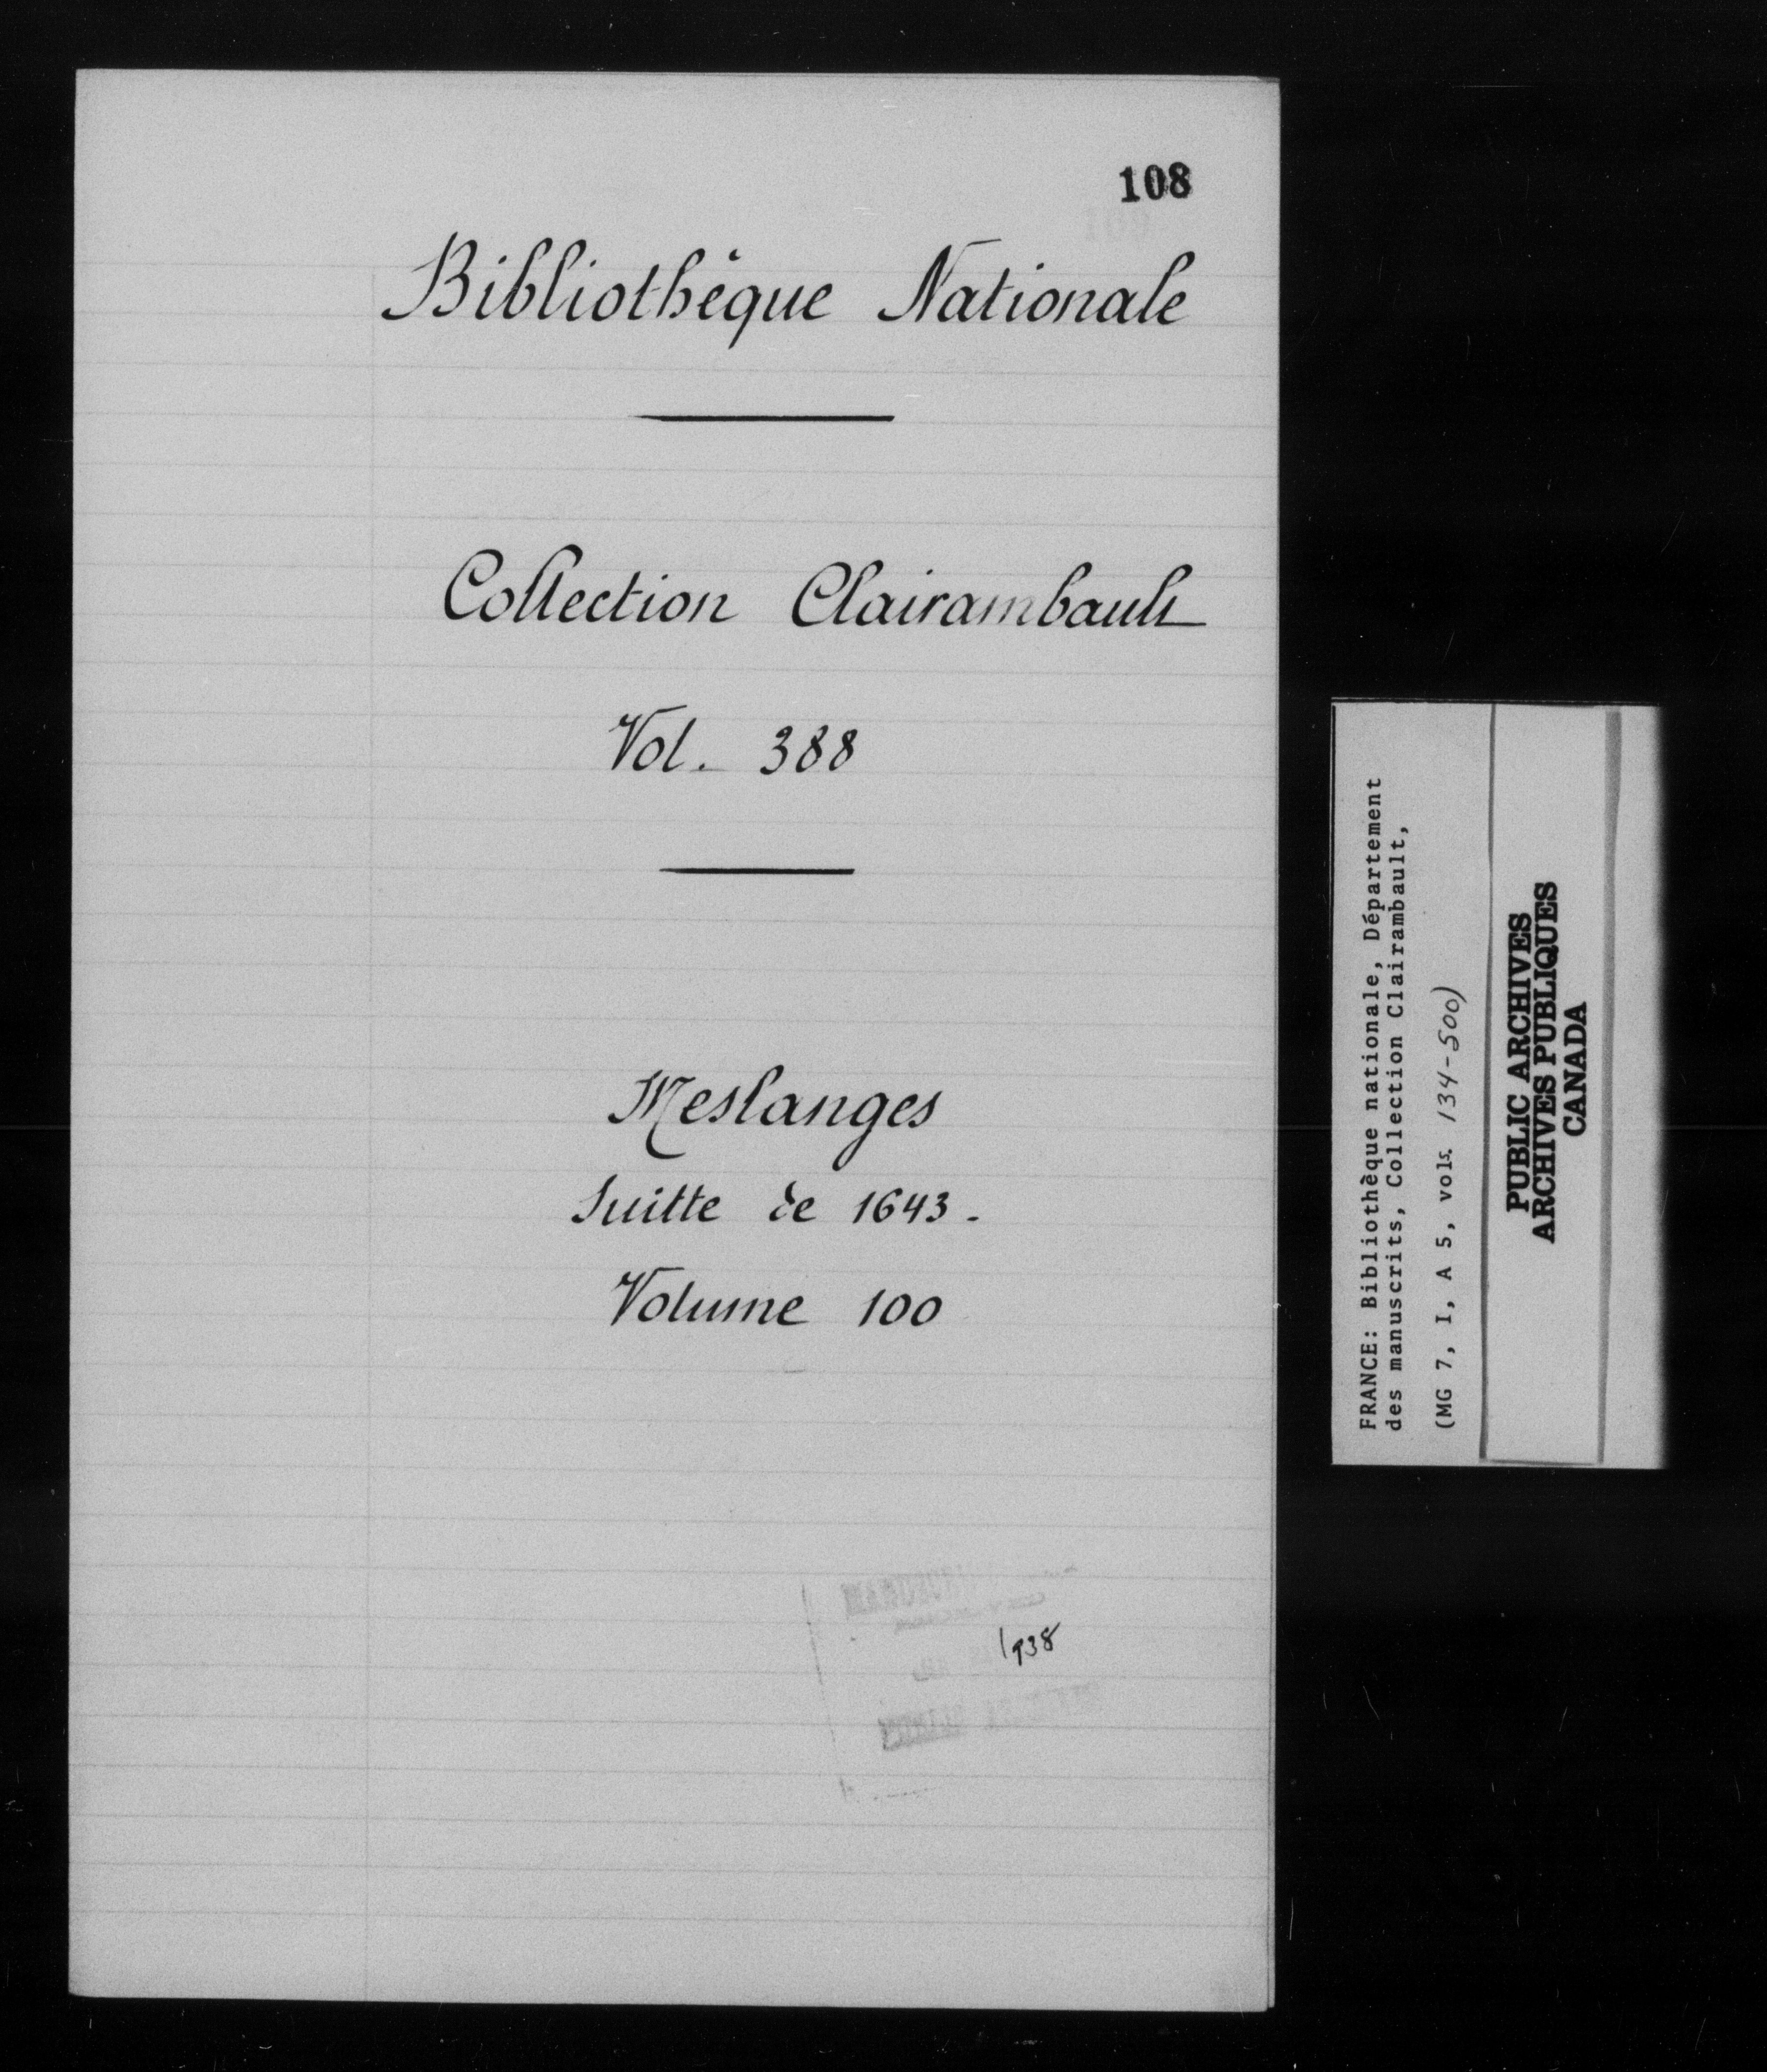 108
Bibliothèque Nationale
Collection Clairambault
Vol. 388
Meslanges
Suitte de 1643.
Volume 100
1938
FRANCE: Bibliothèque nationale, Département
des manuscrits, Collection Clairambault,
(MG 7, I, A 5, vols. 134-500)
PUBLIC ARCHIVES
ARCHIVES PUBLIQUES
CANADA